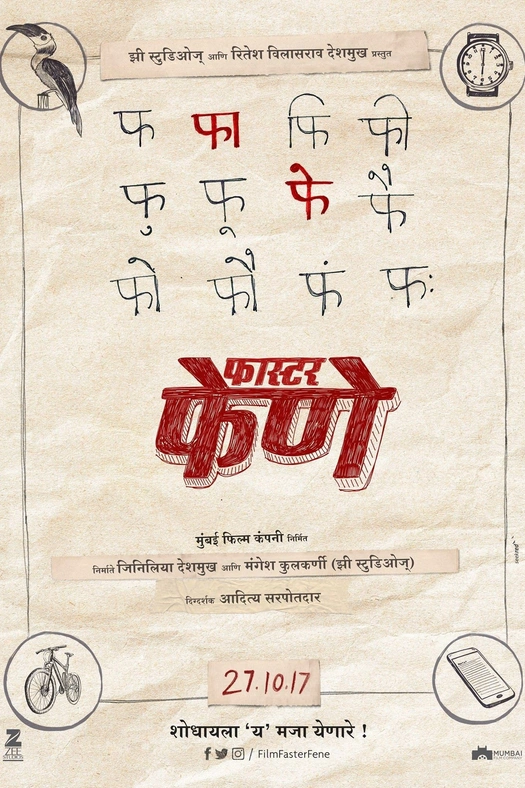 झी स्टुडिओज् आणि रितेश विलासराव देशमुख प्रस्तुत
फ फा फि फी
फु फू फे फै
फो फौ फं फः
फास्टर
फेणे
मुंबई फिल्म कंपनी निर्मित
निर्माते जिनिलिया देशमुख आणि मंगेश कुलकर्णी (झी स्टुडिओज्)
दिग्दर्शक आदित्य सरपोतदार
27.10.17
शोधायला ‘य’ मजा येणारे !
/ FilmFasterFene
ZEE
STUDIOS
MUMBAI
FILM COMPANY